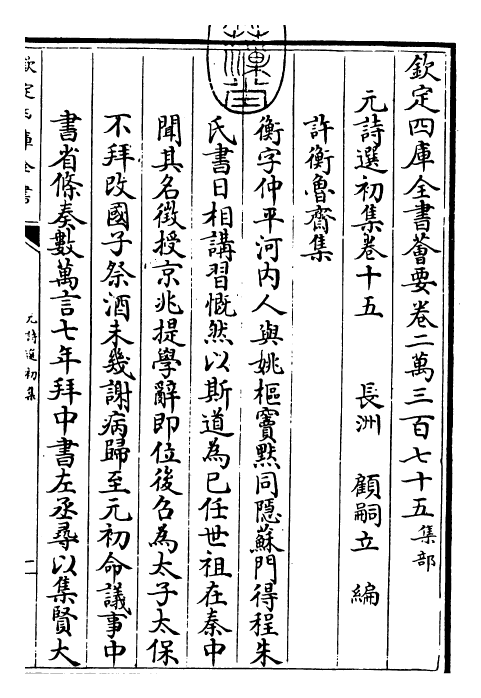 欽定四庫全書薈要卷二萬三百七十五集部
元詩選初集卷十五　長洲　顧嗣立　編
許衡魯齋集
衡字仲平河内人與姚樞竇黙同隱蘇門得程朱
氏書日相講習慨然以斯道為已任世祖在秦中
聞其名徴授京兆提學辭即位後召為太子太保
不拜改國子祭酒未幾謝病歸至元初命議事中
書省條奏數萬言七年拜中書左丞尋以集賢大
元詩選初集